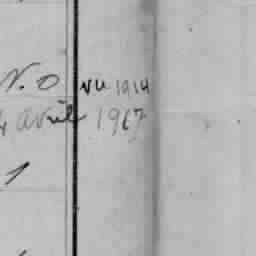 N.O vu 1914
4 avril 1917
1